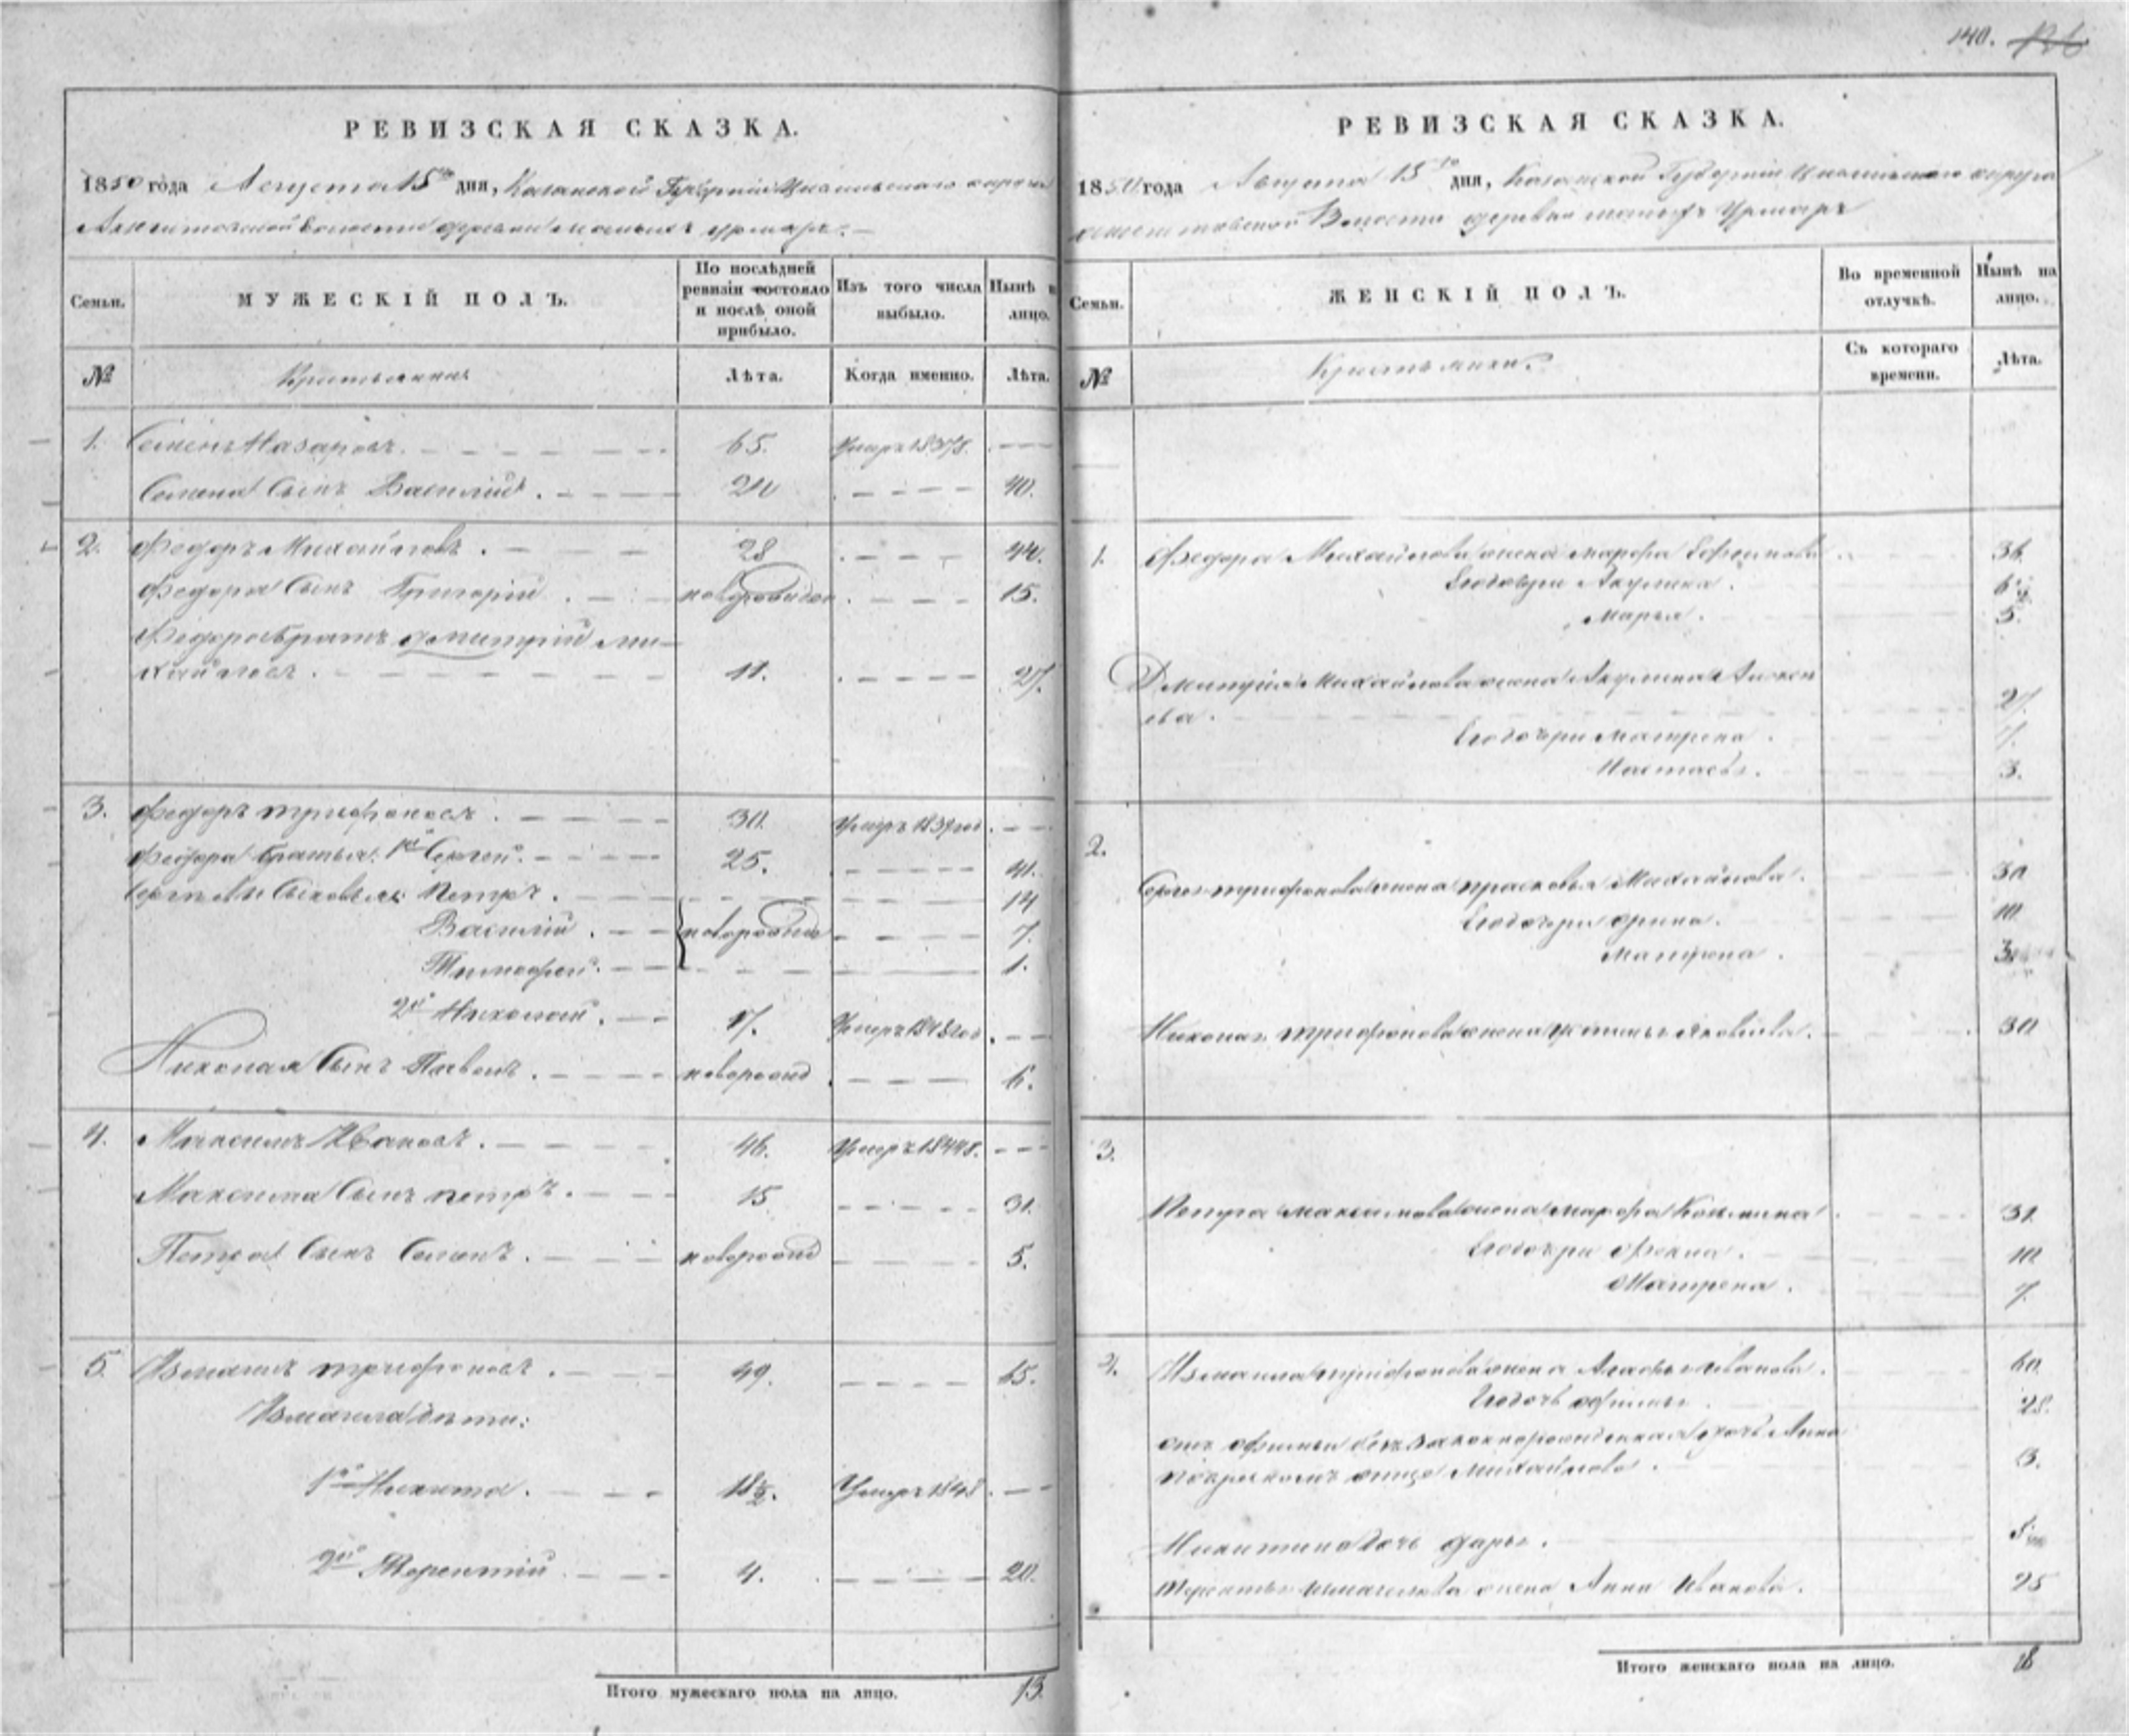 140. 126
РЕВИЗСКАЯ СКАЗКА.
1850 года Августа 15го дня, Казанской Губерніи Цивильскаго округа
волости деревни малыхъ Урмаръ.
Семьи.
МУЖЕСКІЙ ПОЛЪ.
По послѣдней ревизіи состояло и послѣ оной прибыло.
Изъ того числа выбыло.
Нынѣ н лицо.
№
Крестьянинъ
Лѣта.
Когда именно.
Лѣта.
1. Семенъ Назаровъ. 65. Умеръ 1837г.
Семена Сынъ Василій. 24 40.
2. Федоръ Михайловъ. 28 44.
Федора Сынъ Григорій. новорожден 15.
Федора братъ Дмитрій Ми-
хайловъ. 11. 27.
3. Федоръ Трифоновъ. 30. Умеръ 1839год
Федора братья: 1й Сергей. 25. 41.
Сергея Сыновья: Петръ. 14
Василій. новорожден 7.
Тимофей. 1.
2й Николай. 17. Умеръ 1848год
Николая Сынъ Павелъ. новорожд 6.
4. Максимъ Ивановъ. 46. Умеръ 1844г.
Максима Сынъ Петръ. 15 31.
Петра Сынъ Семенъ. новорожд 5.
5. Измаилъ Трифоновъ. 49. 65.
Измаила дѣти:
1й Никита. 18½. Умеръ 1848
2й Терентій 4. 20.
Итого мужескаго пола на лицо. 13.
РЕВИЗСКАЯ СКАЗКА.
1850 года Августа 15го дня, Казанской Губерніи Цивильскаго округа
Волости деревни малыхъ Урмаръ
Семьи.
ЖЕНСКІЙ ПОЛЪ.
Во временной отлучкѣ.
Нынѣ на лицо.
№
Крестьянки.
Съ котораго времени.
Лѣта.
1. Федора Михайлова жена Марфа Ефимова 36.
Егодочери Акулина. 6½
Марья. 5.
Дмитрія Михайлова жена Акулина Алексѣ
ева. 27.
Егодочери Матрена. 7.
Настасья. 3.
2.
Сергея Трифонова жена Прасковья Михайлова. 30
Егодочери Орина. 10.
Матрена. 3
Николая Трифонова жена Устинья Яковлева. 30
3.
Петра Максимова жена Марфа Козьмина. 31.
Егодочери Фекла. 10
Матрена. 7.
4. Измаила Трифонова жена Агафья Иванова. 60.
Егодочь Афимья 28.
отъ Афимьи безъзаконнорожденная дочь Анна
по крестномъ отцѣ Михайлова. 3.
Никитина дочь Дарья.
Терентья Измаилова жена Анна Иванова. 25
Итого женскаго пола на лицо. 18